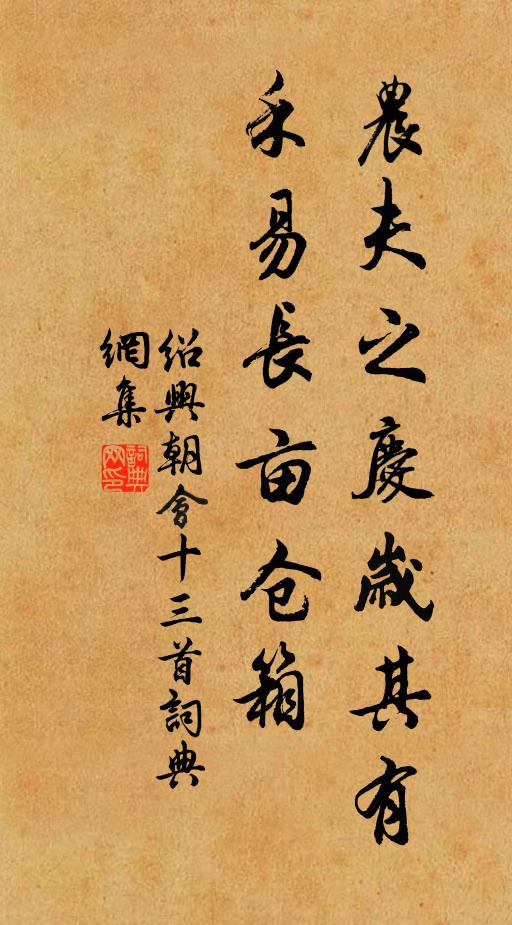 農夫之慶歲其有
禾易長亩仓箱
紹興朝會十三首詞典
網集
詞典
网印